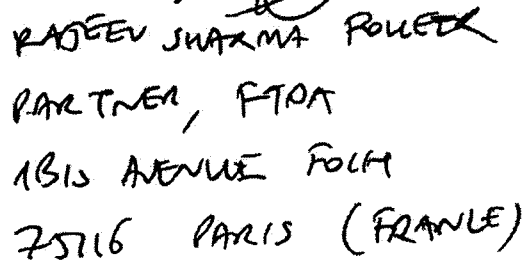 RAJEEV SHARMA FOKEER
PARTNER, FTPA
1BIS AVENUE FOCH
75116 PARIS (FRANCE)